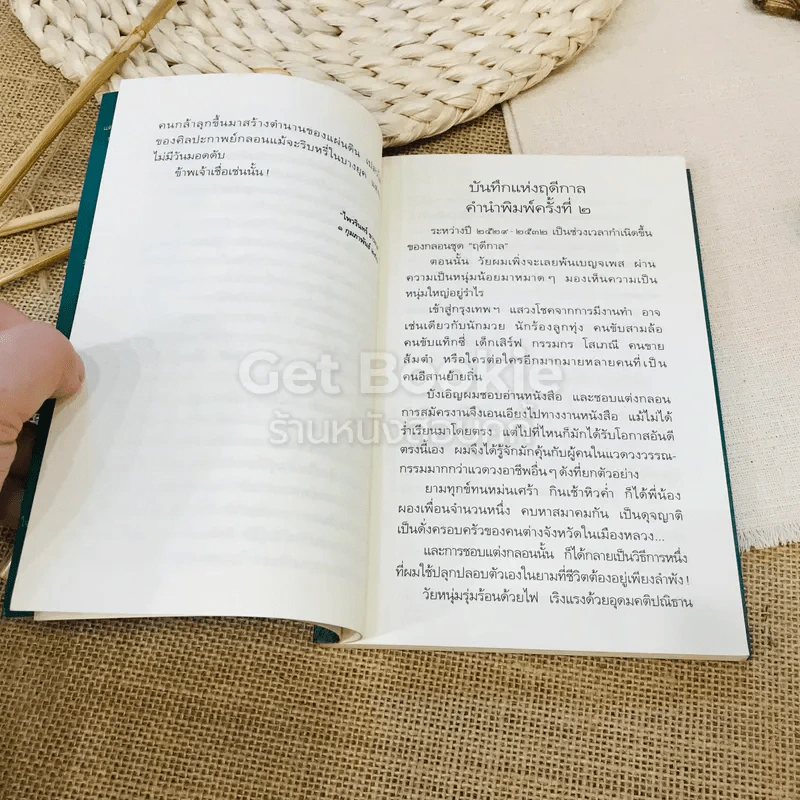 คนกล้าลุกขึ้นมาสร้างตำนานของแผ่นดิน
ของศิลปะกาพย์กลอนแม้จะริบหรี่ในบางยุค
ไม่มีวันมอดดับ
ข้าพเจ้าเชื่อเช่นนั้น !
บันทึกแห่งฤดีกาล
คำนำพิมพ์ครั้งที่ ๒
ระหว่างปี ๒๕๒๙ - ๒๕๓๒ เป็นช่วงเวลากำเนิดขึ้น
ของกลอนชุด "ฤดีกาล"
ตอนนั้น วัยผมเพิ่งจะเลยพ้นเบญจเพส ผ่าน
ความเป็นหนุ่มน้อยมาหมาดๆ มองเห็นความเป็น
หนุ่มใหญ่อยู่รำไร
เข้าสู่กรุงเทพฯ แสวงโชคจากการมีงานทำ อาจ
เช่นเดียวกับนักมวย นักร้องลูกทุ่ง คนขับสามล้อ
คนขับแท็กซี่ เด็กเสิร์ฟ กรรมกร โสเภณี คนขาย
ส้มตำ หรือใครต่อใครอีกมากมายหลายคนที่เป็น
คนอีสานย้ายถิ่น
บังเอิญผมชอบอ่านหนังสือ และชอบแต่งกลอน
การสมัครงานจึงเอนเอียงไปทางงานหนังสือ แม้ไม่ได้
ร่ำเรียนมาโดยตรง แต่ไปที่ไหนก็มักได้รับโอกาสอันดี
ตรงนี้เอง ผมจึงได้รู้จักมักคุ้นกับผู้คนในแวดวงวรรณ-
กรรมมากกว่าแวดวงอาชีพอื่นๆ ดังที่ยกตัวอย่าง
ยามทุกข์ทนหม่นเศร้า กินเช้าหิวค่ำ ก็ได้พี่น้อง
ผองเพื่อนจำนวนหนึ่ง คบหาสมาคมกัน เป็นดุจญาติ
เป็นดั่งครอบครัวของคนต่างจังหวัดในเมืองหลวง...
และการชอบแต่งกลอนนั้น ก็ได้กลายเป็นวิธีการหนึ่ง
ที่ผมใช้ปลุกปลอบตัวเองในยามที่ชีวิตต้องอยู่เพียงลำพัง !
วัยหนุ่มรุ่มร้อนด้วยไฟ เริงแรงด้วยอุดมคติปณิธาน
Get Bookie
ร้านหนังสือลูกกี้